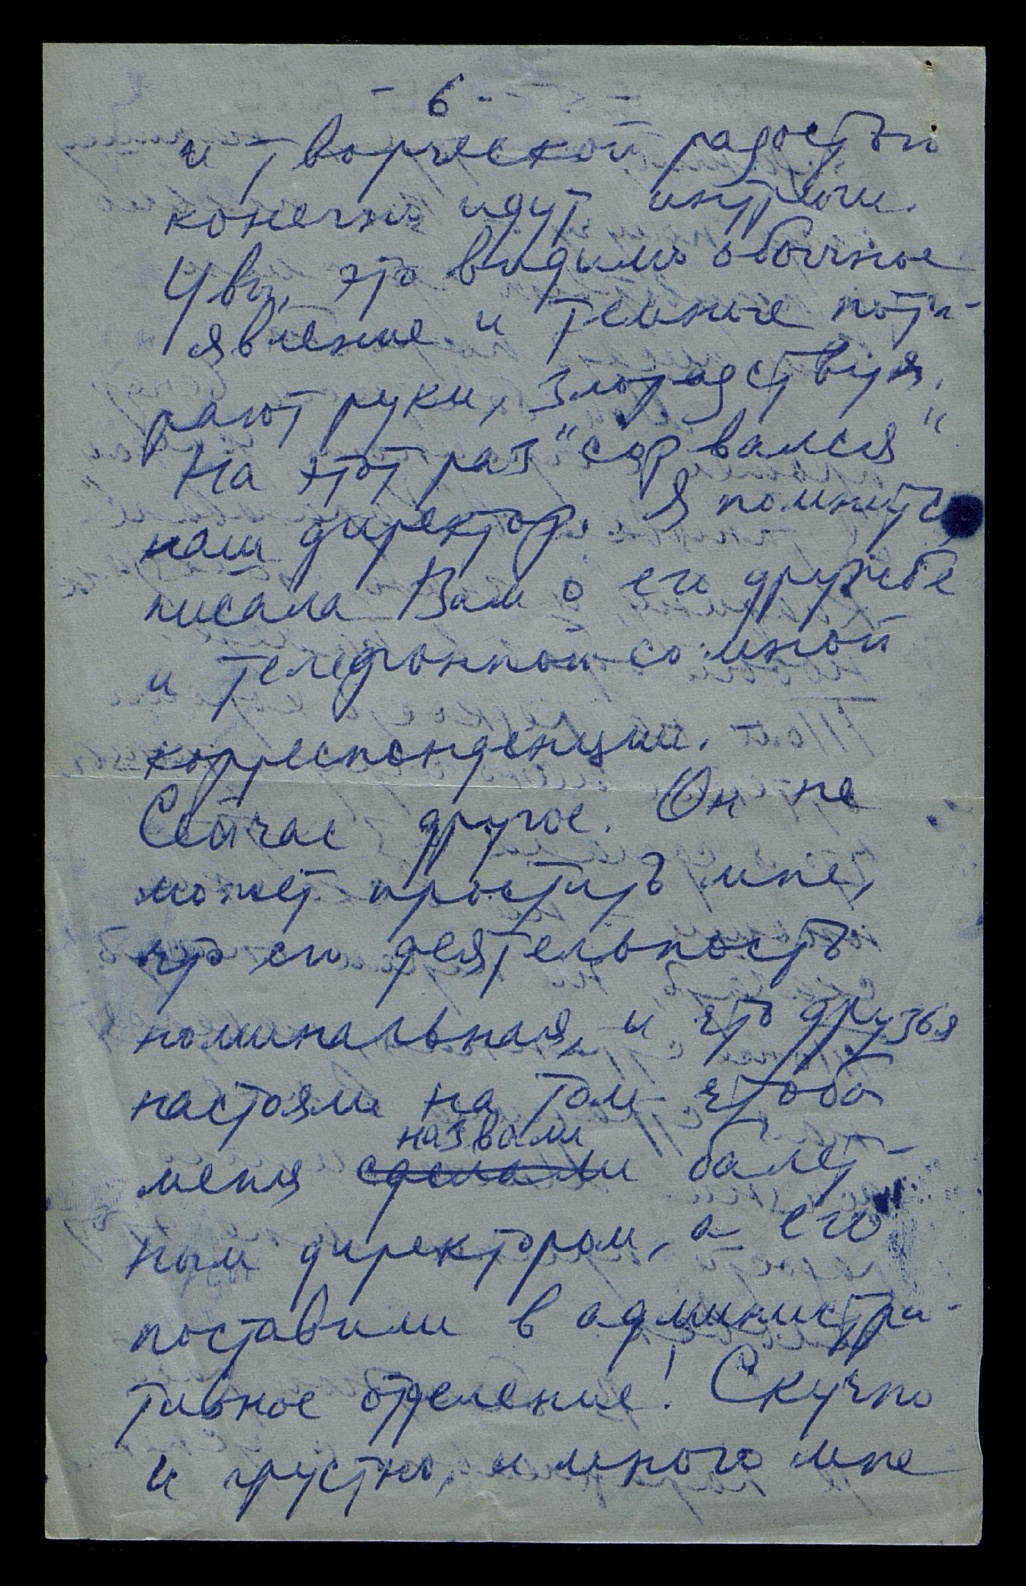 - 6 -
и творческой радостью
конечно идут интриги.
Увы, это видимо обычное
явление и темные поти-
рают руки, злорадствуя.
На этот раз "сорвался"
наш директор. Я помнится
писала Вам о его дружбе
и телефонной со мной
корреспонденции.
Сейчас другое. Он не
может простить мне,
что его деятельность
номинальная, и что друзья
настояли на том чтобы
назвали
меня сделали балет-
ным директором, а его
поставили в администра-
тивное отделение! Скучно
и грустно, и много мне